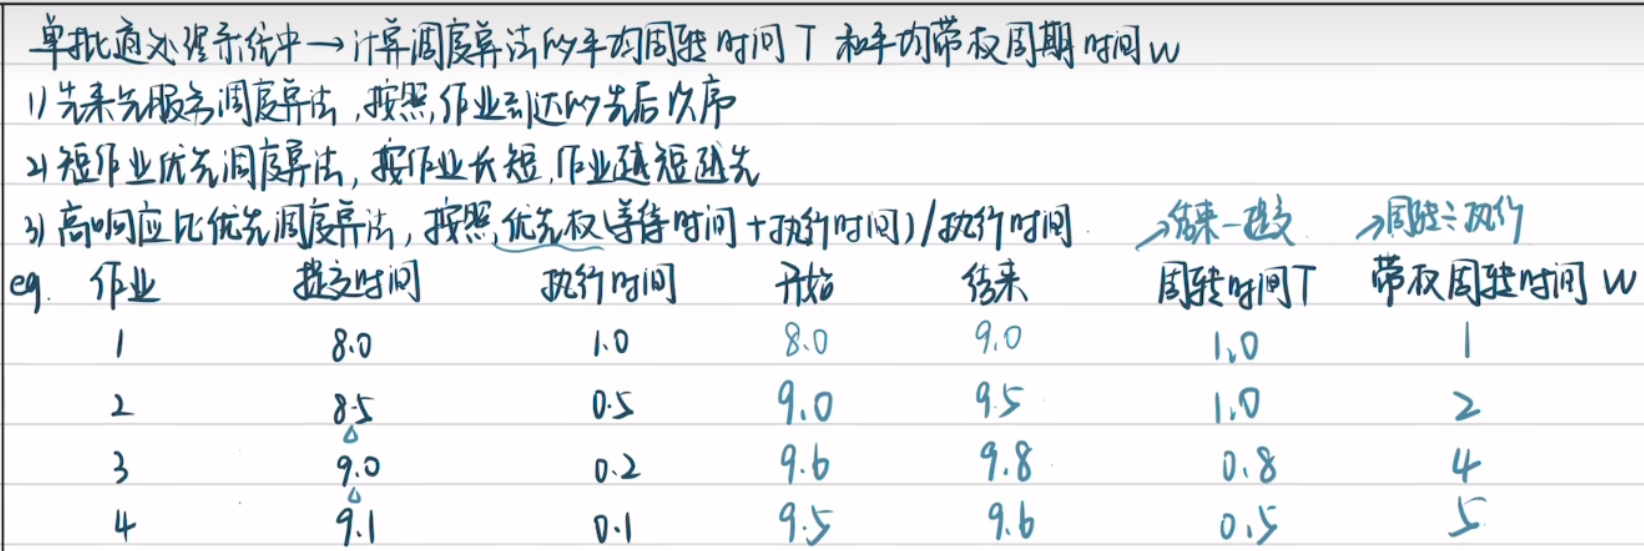 单批道处理系统中→计算调度算法的平均周转时间T 和平均带权周期时间W
1) 先来先服务调度算法,按照,作业到达的先后次序
2) 短作业优先调度算法,按作业长短,作业越短越先
3) 高响应比优先调度算法,按照,优先权(等待时间+执行时间)/执行时间 →结束-提交 →周转÷执行
eg. 作业 提交时间 执行时间 开始 结束 周转时间T 带权周转时间W
1 8.0 1.0 8.0 9.0 1.0 1
2 8.5 0.5 9.0 9.5 1.0 2
3 9.0 0.2 9.6 9.8 0.8 4
4 9.1 0.1 9.5 9.6 0.5 5